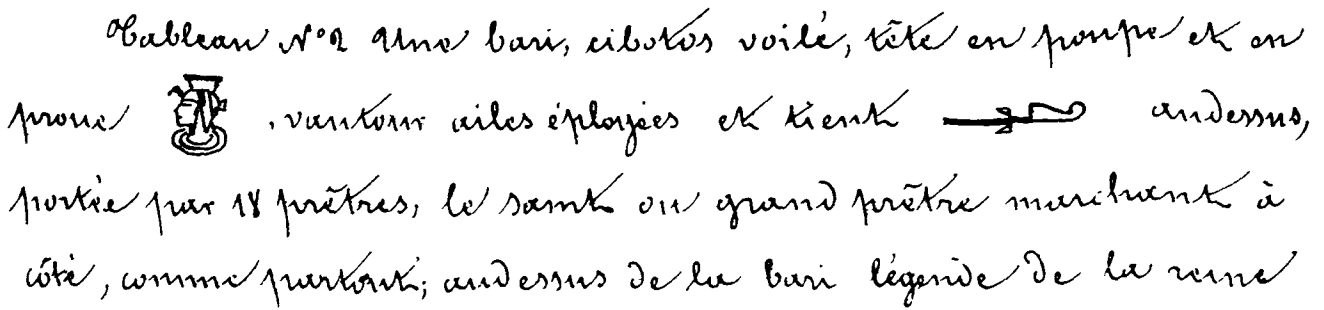 Tableau N° 2 Une bari, cibotos voilé, tête en poupe et en
proue , vautour ailes éployées et tient audessus,
portée par 18 prêtres, le samt ou grand prêtre marchant à
côté, comme partout; audessus de la bari légende de la reine